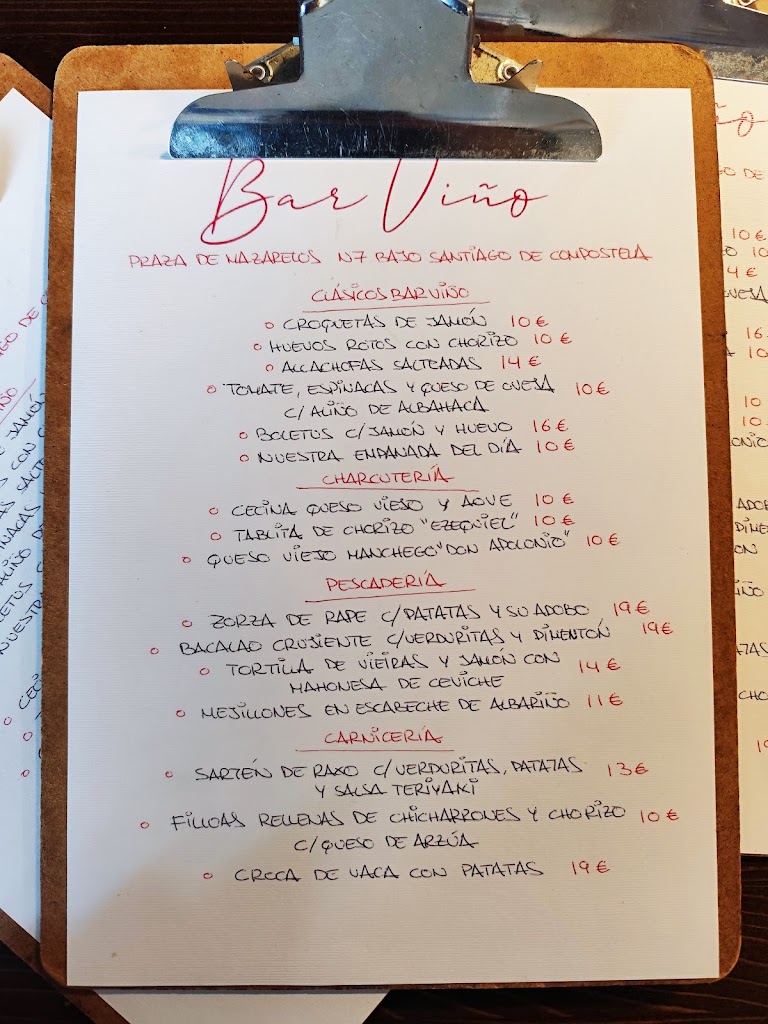 Bar Viño
PRAZA DE MAZARELOS N7 BAJO SANTIAGO DE COMPOSTELA
CLÁSICOS BAR VIÑO
CROQUETAS DE JAMÓN 10 €
HUEVOS ROTOS CON CHORIZO 10 €
ALCACHOFAS SALTEADAS 14 €
TOMATE, ESPINACAS Y QUESO DE OVEJA 10 €
C/ ALIÑO DE ALBAHACA
BOLETUS C/JAMÓN Y HUEVO 16 €
NUESTRA EMPANADA DEL DÍA 10 €
CHARCUTERÍA
CECINA QUESO VIEJO Y AOVE 10 €
TABLITA DE CHORIZO "EZEQUIEL" 10 €
QUESO VIEJO MANCHEGO "DON APOLONIO" 10 €
PESCADERÍA
ZORZA DE RAPE C/PATATAS Y SU ADOBO 19 €
BACALAO CRUJIENTE C/VERDURITAS Y PIMENTÓN 19 €
TORTILLA DE VIEIRAS Y JAMÓN CON 14 €
MAHONESA DE CEVICHE
MEJILLONES EN ESCABECHE DE ALBARIÑO 11 €
CARNICERÍA
SARTÉN DE RAXO C/VERDURITAS, PATATAS 13 €
Y SALSA TERIYAKI
FILLOAS RELLENAS DE CHICHARRONES Y CHORIZO 10 €
C/QUESO DE ARZÚA
CROCA DE VACA CON PATATAS 19 €